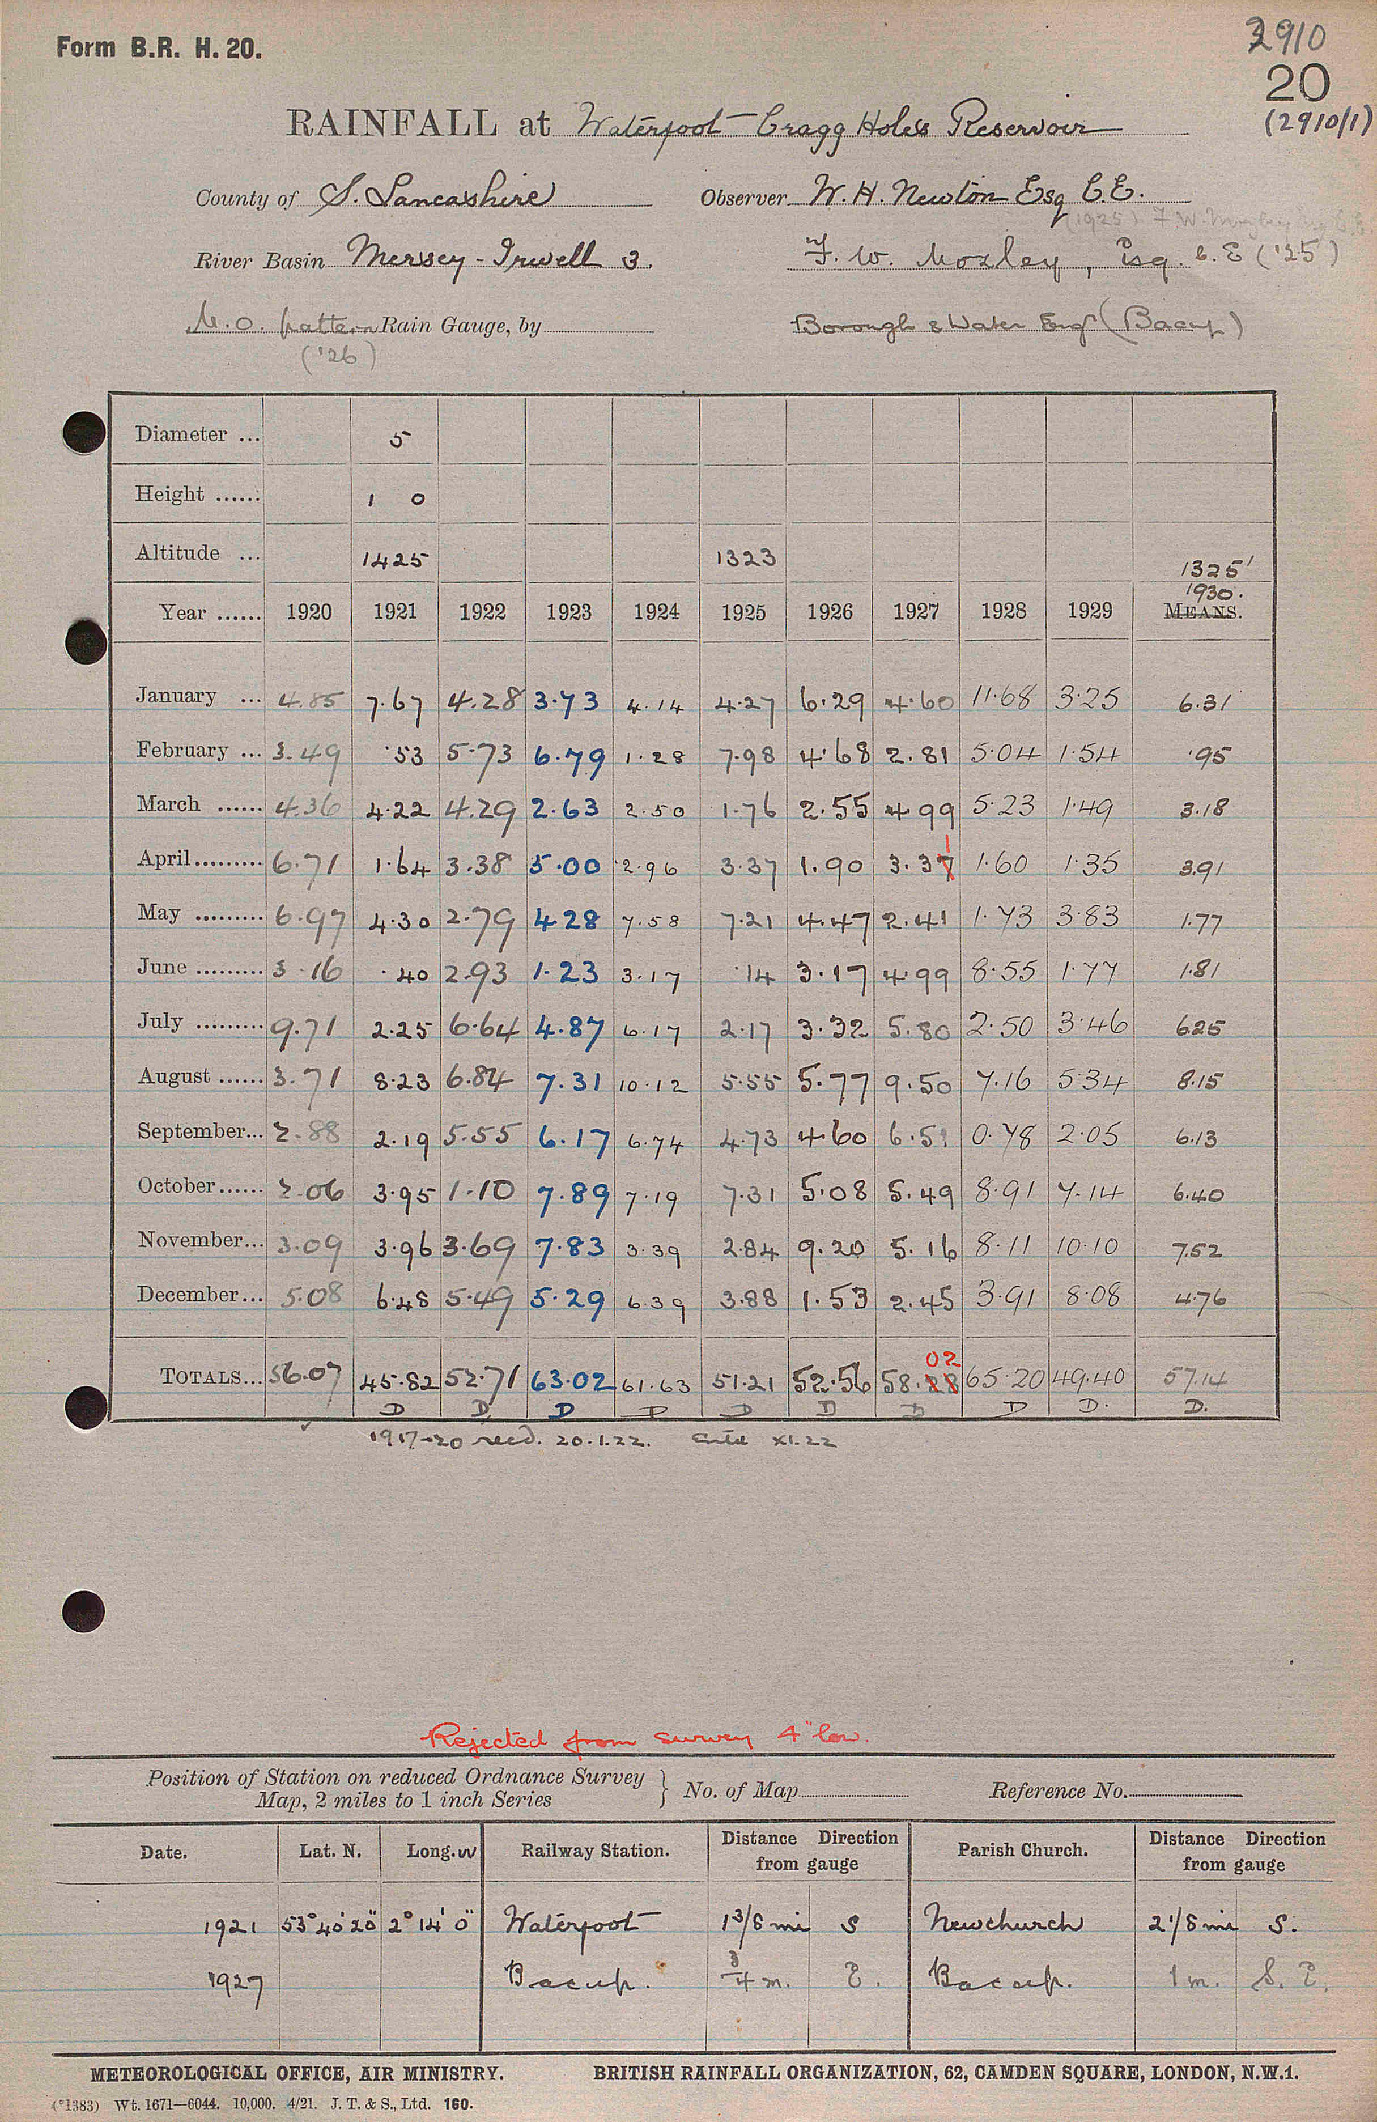 Form B.R. H. 20.
2910
20
(2910/1)
RAINFALL at Waterfoot - Cragg Holes Reservoir
County of S. Lancashire Observer W. H. Newton Esq C.E.
River Basin Mersey - Irwell 3. F. W. Mozley, Esq. C. E ('25)
M.O. pattern Rain Gauge, by Borough & Water Engr (Bacup)
('26)
Diameter ... 5
Height ...... 1 0
Altitude ... 1425 1323 1325'
1930.
Year ...... 1920 1921 1922 1923 1924 1925 1926 1927 1928 1929 MEANS.
January ... 4.85 7.67 4.28 3.73 4.14 4.27 6.29 4.60 11.68 3.25 6.31
February ... 3.49 .53 5.73 6.79 1.28 7.98 4.68 2.81 5.04 1.54 .95
March ...... 4.36 4.22 4.29 2.63 2.50 1.76 2.55 4.99 5.23 1.49 3.18
1
April......... 6.71 1.64 3.38 5.00 2.96 3.37 1.90 3.37 1.60 1.35 3.91
May ......... 6.97 4.30 2.79 4.28 7.58 7.21 4.47 2.41 1.73 3.83 1.77
June ......... 3.16 .40 2.93 1.23 3.17 .14 3.17 4.99 8.55 1.77 1.81
July ......... 9.71 2.25 6.64 4.87 6.17 2.17 3.32 5.80 2.50 3.46 6.25
August ...... 3.71 8.23 6.84 7.31 10.12 5.55 5.77 9.50 7.16 5.34 8.15
September... 2.88 2.19 5.55 6.17 6.74 4.73 4.60 6.51 0.78 2.05 6.13
October...... 2.06 3.95 1.10 7.89 7.19 7.31 5.08 5.49 8.91 7.14 6.40
November... 3.09 3.96 3.69 7.83 3.39 2.84 9.20 5.16 8.11 10.10 7.52
December... 5.08 6.48 5.49 5.29 6.39 3.88 1.53 2.45 3.91 8.08 4.76
02
TOTALS... 56.07 45.82 52.71 63.02 61.63 51.21 52.56 58.88 65.20 49.40 57.14
D D D D D D D D D. D.
1917-20 recd. 20.1.22. XI.22
Rejected from survey 4" low.
Position of Station on reduced Ordnance Survey
Map, 2 miles to 1 inch Series } No. of Map Reference No.
Date. Lat. N. Long. W Railway Station. Distance from gauge Direction Parish Church. Distance from gauge Direction
1921 53° 40' 20" 2° 14' 0" Waterfoot 1 3/8 mi S Newchurch 2 1/8 mi S.
1927 Bacup. 3/4 m. E. Bacup. 1 m. S. E.
METEOROLOGICAL OFFICE, AIR MINISTRY. BRITISH RAINFALL ORGANIZATION, 62, CAMDEN SQUARE, LONDON, N.W.1.
(*1383) Wt. 1671—6044. 10,000. 4/21. J. T. & S., Ltd. 160.